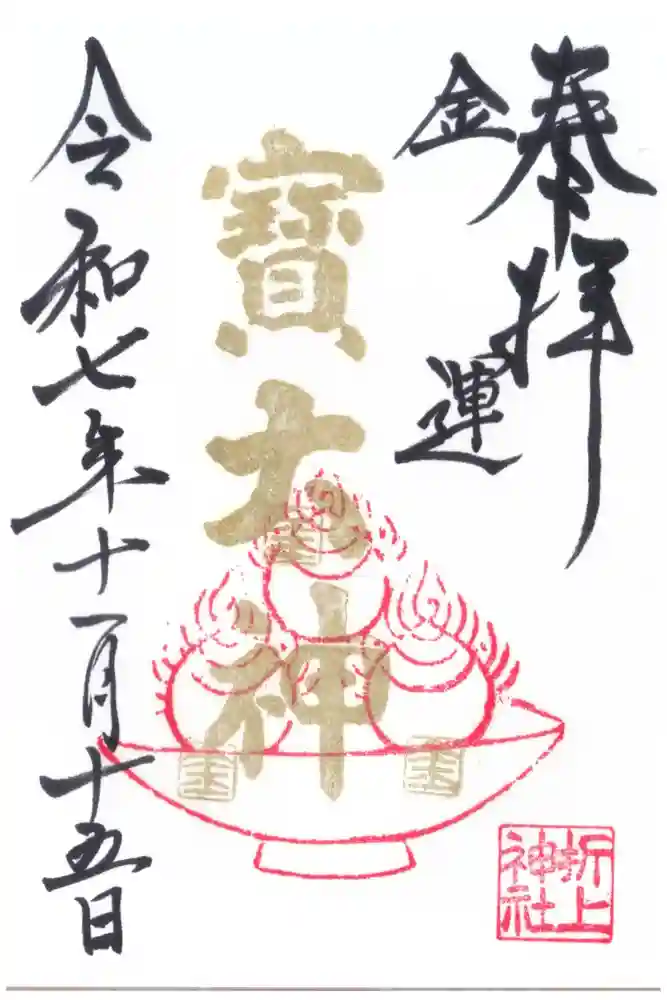 奉拝
金運
寶大神
令和七年十一月十五日
折上
神社